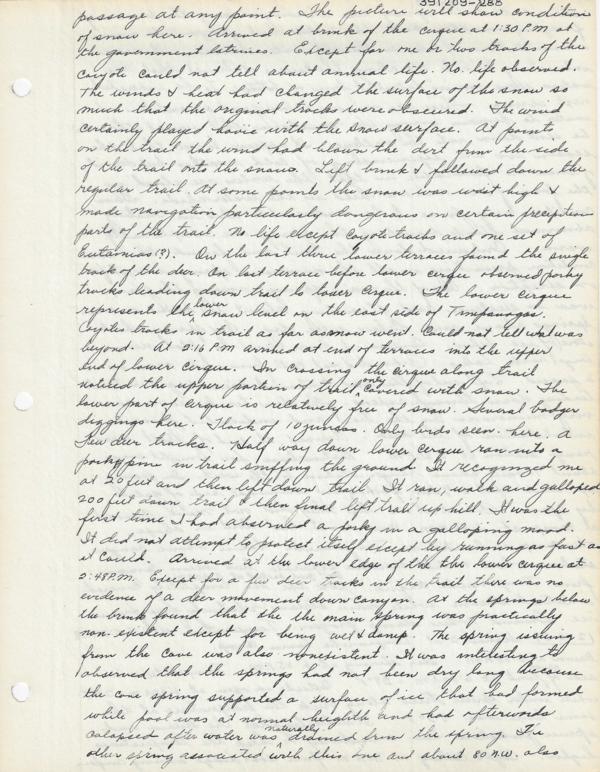 391209-288
passage at any point. The picture will show condition
of snow here. Arrived at brink of the cirque at 1:30 P.M. at
the government latrines. Except for one or two tracks of the
coyote could not tell about animal life. No life observed.
The winds & heat had changed the surface of the snow so
much that the original tracks were obscured. The wind
certainly played havic with the snow surface. At points
on the trail the wind had blown the dirt from the side
of the trail onto the snow. Left brink & followed down the
regular trail. At some points the snow was waist high &
made navigation particularly dangerous on certain
parts of the trail. No life except coyote tracks and one set of
Eutamias(?). On the last three lower terraces found the single
track of the deer. On last terrace before lower cirque observed porky
tracks leading down trail to lower cirque. The lower cirque
represents the lower snow level on the east side of Timpanogos.
Coyotes tracks in trail as far as snow went. Could not tell what was
beyond. At 2:16 P.M arrived at end of terraces into the upper
end of lower cirque. In crossing the cirque along trail
noticed the upper portion of trail only covered with snow. The
lower part of cirque is relatively free of snow. Several badger
diggings here. Flock of 10 juncos. Only birds seen here. A
few deer tracks. Half way down lower cirque ran into a
porkypine in trail sniffing the ground. It recognized me
at 20 feet and then left down trail. It ran, walk and galloped
200 feet down trail & then final left trail up hill. It was the
first time I had observed a porky in a galloping mood.
It did not attempt to protect itself except by running as fast as
it could. Arrived at the lower edge of the the lower cirque at
2:48 P.M. Except for a few deer tracks in the trail there was no
evidence of a deer movement down canyon. At the springs below
the brink found that the the main spring was practically
non-existent except for being wet & damp. The spring issuing
from the cave was also nonexistent. It was interesting to
observed that the springs had not been dry long because
the cave spring supported a surface of ice that had formed
while pool was at normal heighth and had afterwards
colapsed after water was naturally drained from the spring. The
other spring associated with this one and about 80 N.W. also